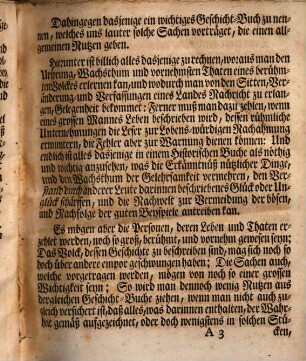 Dahingegen dasjenige ein wichtiges Geschicht-Buch zu nen-
nen, welches uns lauter solche Sachen vorträget, die einen all-
gemeinen Nutzen geben.
Hierunter ist billich alles dasjenige zu rechnen, woraus man den
Ursprung, Wachsthum und vornehmsten Thaten eines berühm-
ten Volckes erlernen kan, und wodurch man von den Sitten, Ver-
änderung und Verfassungen eines Landes Nachricht zu erlan-
gen, Gelegenheit bekommt: Ferner muß man dazu zehlen, wenn
eines grossen Mannes Leben beschrieben wird, dessen rühmliche
Unternehmungen die Leser zur Lobens-würdigen Nachahmung
ermuntern, die Fehler aber zur Warnung dienen können: Und
endlich ist alles dasjenige in einem Historischen Buche als nöthig
und wichtig anzusehen, was die Erkänntnüß nützlicher Dinge,
und den Wachsthum der Gelehrsamkeit vermehren, den Ver-
stand durch anderer Leute darinnen beschriebenes Glück oder Un-
glück schärffen, und die Nachwelt zur Vermeidung der bösen,
und Nachfolge der guten Beyspiele antreiben kan.
Es mögen aber die Personen, deren Leben und Thaten er-
zehlet werden, noch so groß, berühmt, und vornehm gewesen seyn;
Das Volck, dessen Geschichte zu beschreiben sind, mag sich noch so
hoch über andere empor geschwungen haben; Die Sachen auch,
welche vorgetragen werden, mögen von noch so einer grossen
Wichtigkeit seyn; So wird man dennoch wenig Nutzen aus
dergleichen Geschicht-Buche ziehen, wenn man nicht auch zu-
gleich versichert ist, daß alles, was darinnen enthalten, der Wahr-
heit gemäß aufgezeichnet, oder doch wenigstens in solchen Stü-
A 3 cken,